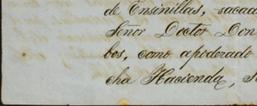 de Ensinillas, sacad
Señor Doctor Don
bos, como apoderado
cha Hacienda, s